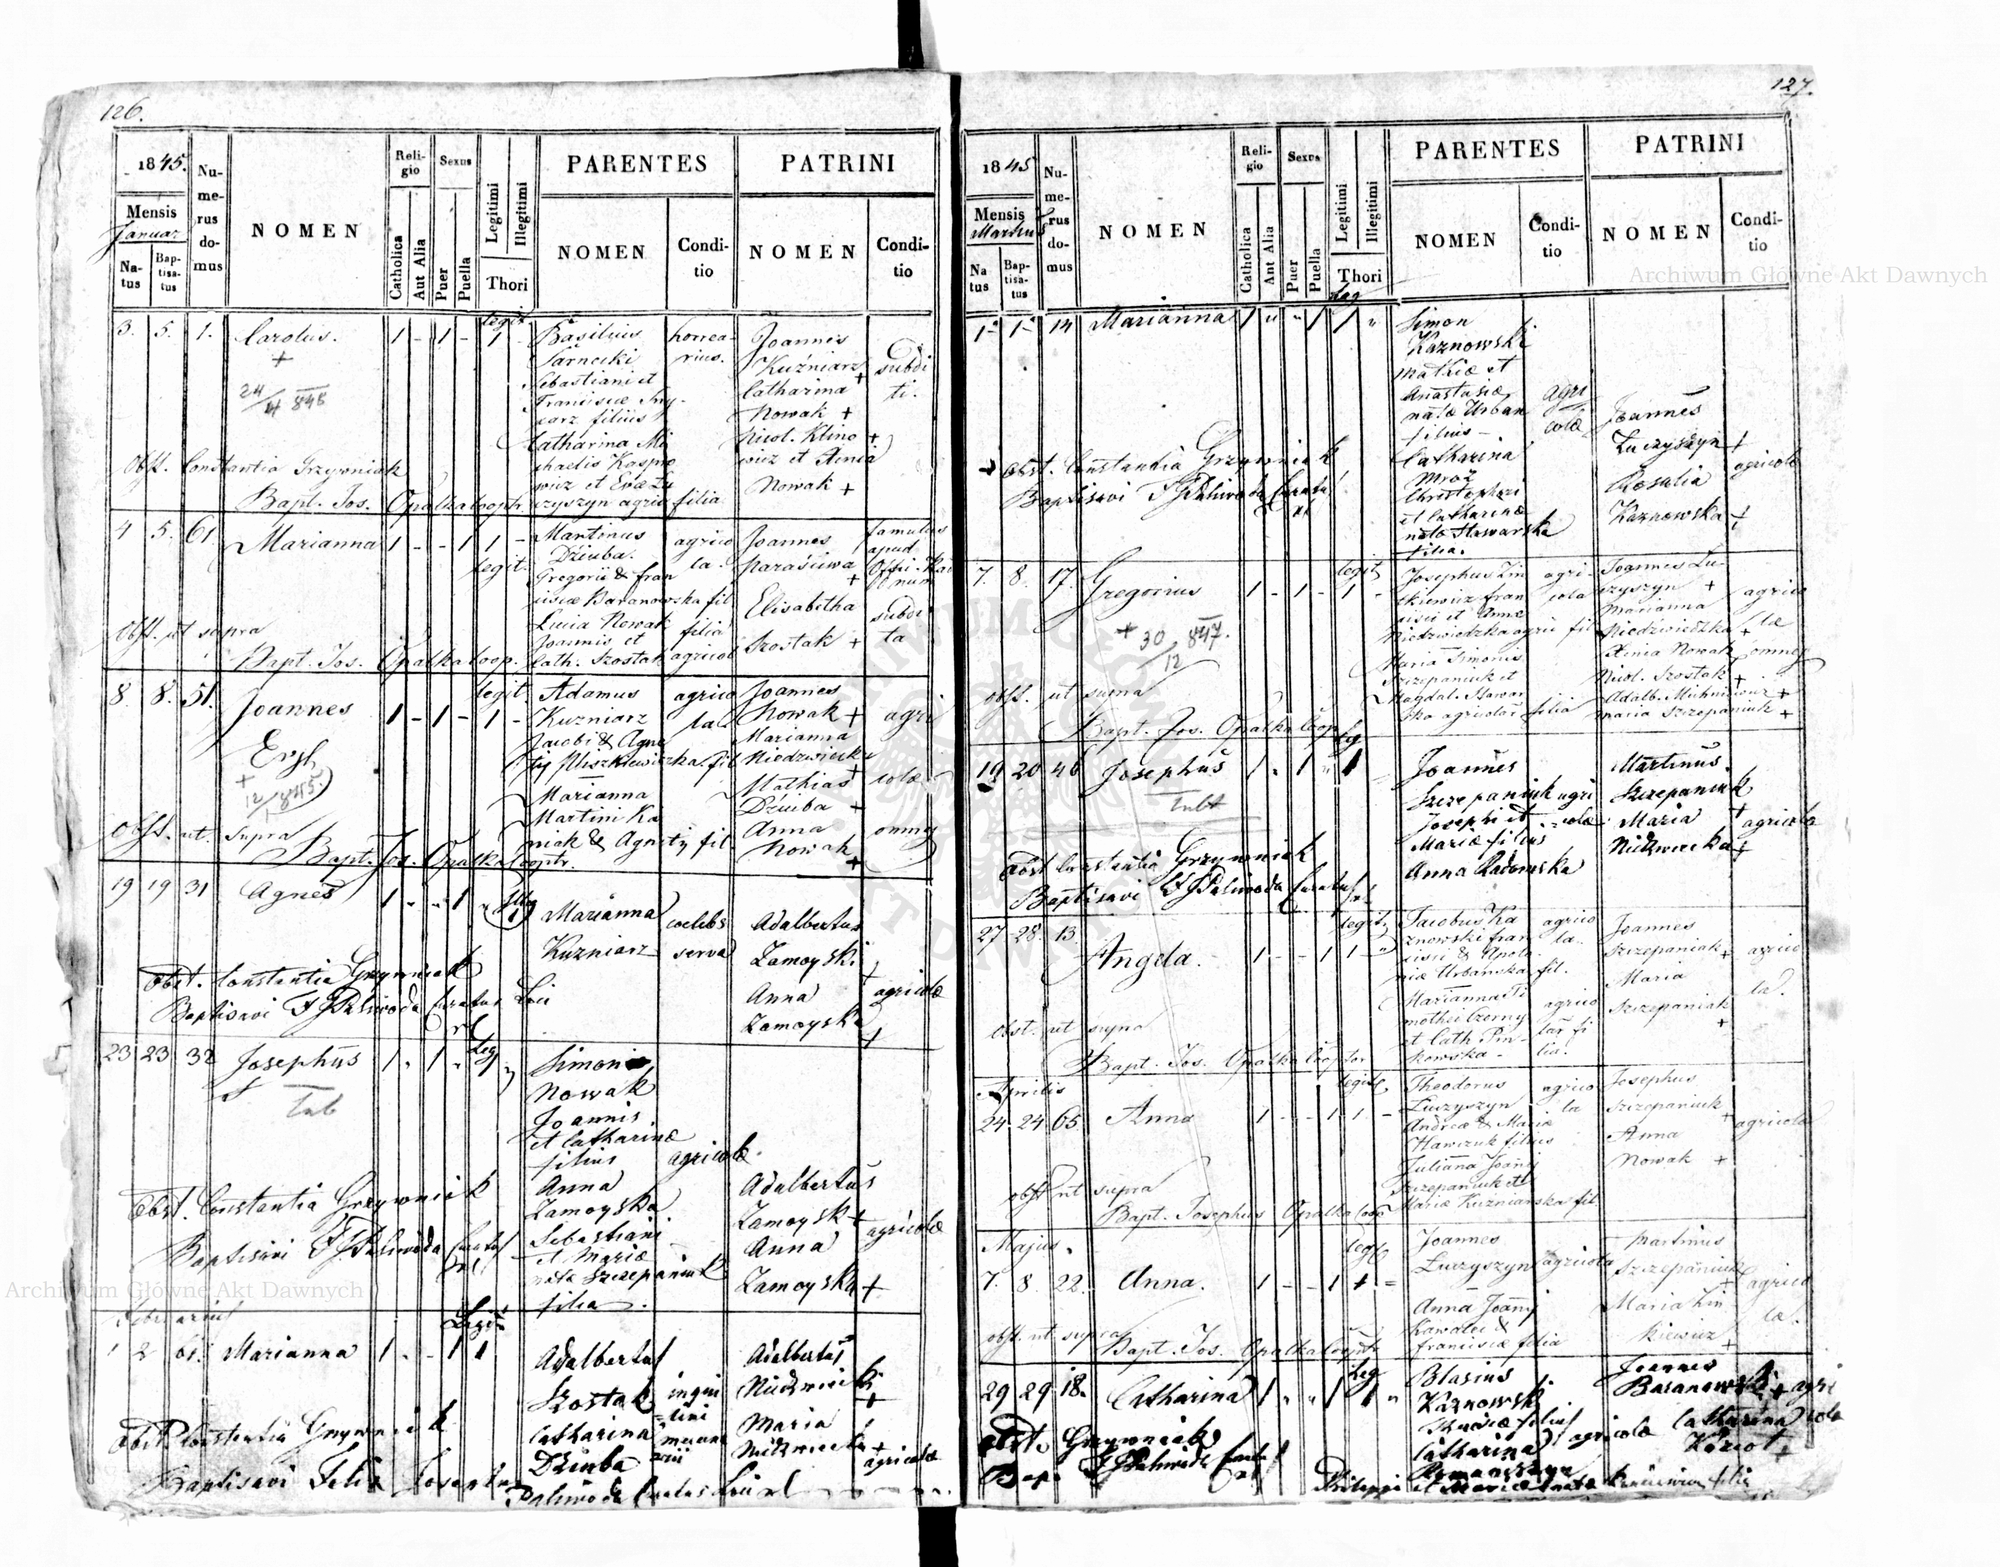 126.
1845.
Mensis
Januar.
Na-
tus
Bap-
tisa-
tus
Nu-
me-
rus
do-
mus
NOMEN
Reli-
gio
Catholica
Aut Alia
Sexus
Puer
Puella
Legitimi
Illegitimi
Thori
PARENTES
NOMEN
Condi-
tio
PATRINI
NOMEN
Condi-
tio
3. 5. 1. Carolus. 1 - 1 - legit. 1 -
+
Basilius
Sarnecki
Sebastiani et
Catharina Mi
chaelis Kaspro
wicz et
horrea-
rius.
Joannes
Kuźniarz +
Catharina
Nowak +
Nicol. Klino +
wicz et Xenia
Nowak +
subdi
ti.
Obst. Constantia Grzywniak
Bapt. Jos. Opalka Cooptr.
4 5. 61 Marianna 1 - - 1 1 -
legit.
Martinus
Dziuba.
Gregorii & Fran
ciscæ Baranowska fil
Lucia Nowak filia
Joannis et
Cath. Szostak agricol
agrico
la.
Joannes
Parasiuwa
+
Elisabetha
Szostak +
famulus
apud
subdi
ta
Obst. ut supra
Bapt. Jos. Opalka Coop.
8. 8. 51. Joannes 1 - 1 - legit. 1 -
+
12/ 845.
Adamus
Kuzniarz
Jacobi & Agne
Marianna
Martini Ka
niak & Agnetis fil.
agrico
la
Joannes
Nowak +
Marianna
Niedzwiecka
Mathias +
Dziuba +
Anna
Nowak +
agri
colæ
omnes
Obst. ut supra
Bapt. Jos. Opalka Cooptr.
19 19 31 Agnes 1 " " 1 "
Marianna
Kuzniarz
coelebs
serva
Adalbertus
Zamoyski
+
Anna
Zamoyska
+
agricolæ
Obst. Constantia Grzywniak
Baptisavi F J Paliwoda Curatus Loci
23 23 32 Josephus 1 " 1 " Leg
Simon
Nowak
Joannis
et Catharinæ
filius
Anna
Zamoyska
Sebastiani
et Mariæ
nata Szczepaniuk
filia.
agricolæ.
Adalbertus
Zamoysk +
Anna
Zamoyska +
agricolæ
Obst. Constantia Grzywniak
Baptisavi F J Paliwoda Curatus
Februarius
1 2 61. Marianna 1 " - 1 1
Legit
Adalbertus
Szostak
Catharina
Dziuba
inqui
lini
Adalbertus
Niedzwiecki
+
Maria
Niedzwiecka +
agricolæ
Obst. Constantia Grzywniak
Baptisavi Felix Josephus
Paliwoda Curatus Loci
127.
1845
Mensis
Martius
Na
tus
Bap-
tisa-
tus
Nu-
me-
rus
do-
mus
NOMEN
Reli-
gio
Catholica
Ant Alia
Sexus
Puer
Puella
Legitimi
Illegitimi
Thori
PARENTES
NOMEN
Condi-
tio
PATRINI
NOMEN
Condi-
tio
1 1 14 Marianna 1 " " 1 Leg 1 "
Simon
Kaznowski
Mathiæ et
Anastasiæ
natæ Urban
filius
Catharina
Mróz
Christophori
et Catharinæ
nata Hawarska
filia.
agri
colæ
Joannes
Łuczyszyn +
Rosalia
Kaznowska +
agricolæ
Obst. Constantia Grzywniak
Baptisavi F J Paliwoda Curatus
7. 8. 17. Gregorius 1 - 1 - legit 1 -
+ 30/12 847.
Josephus Zin
kiewicz Fran
cisci et Annæ
Niedzwiedzka agric fil
Maria Simonis
Szczepaniuk et
Magdal. Hawar
ska agricolar filia
agri-
cola
Joannes Łu-
czyszyn +
Marianna
Niedzwiedzka +
Xenia Nowak
Nicol. Szostak +
Adalb. Michniewicz +
Maria Szczepaniuk +
agrico
læ
omnes
Obst. ut supra
Bapt. Jos. Opalka Coop
19 20 46 Josephus 1 " 1 " Leg 1
Joannes
Szczepaniuk
Josephi et
Mariæ filius
Anna Radomska
agri
colæ
Martinus
Szczepaniuk
+
Maria
Niedzwiecka +
agricola
Obst Constantia Grzywniak
Baptisavi F J Paliwoda Curatus
27 28. 13. Angela. 1 - - 1 legit. 1 "
Jacobus Ka
znowski Fran
cisci & Apolo
niæ Urbanska fil.
Marianna Ti
mothei Czerny
et Cath Pin-
kowska -
agrico
la.
agrico
lar fi
lia.
Joannes
Szczepaniak +
Maria
Szczepaniak
+
agrico
la.
Obst. ut supra
Bapt. Jos. Opalka Cooptor
Aprilis
24 24 65. Anna 1 - - 1 legit. 1 -
Theodorus
Łuczyszyn
Andreæ & Mariæ
Hawczuk filius
Juliana Joannis
Szczepaniuk et
Mariæ Kuźniarska fil.
agrico
la
Josephus
Szczepaniuk +
Anna
Nowak +
agricolæ
Obst ut supra
Bapt. Josephus Opalka Coop
Majus.
7. 8. 22. Anna. 1 - - 1 legit 1 -
Joannes
Łuczyszyn
Anna Joannis
Kowalci &
Franciscæ filia
agricola
Martinus
Szczepaniuk
+
Maria Zin
kiewicz +
agrico
læ.
Obst. ut supra
Bapt. Jos. Opalka Cooptr
29 29 18. Catharina 1 " " 1 Leg 1 "
Blasius
Kaznowski
Catharina
agricolæ
Joannes
Baranowski +
Catharina
Kozioł +
agri
colæ
Obst. Grzywniak
Bap. F J Paliwoda Curatus
Philippi et Mariæ natæ filia